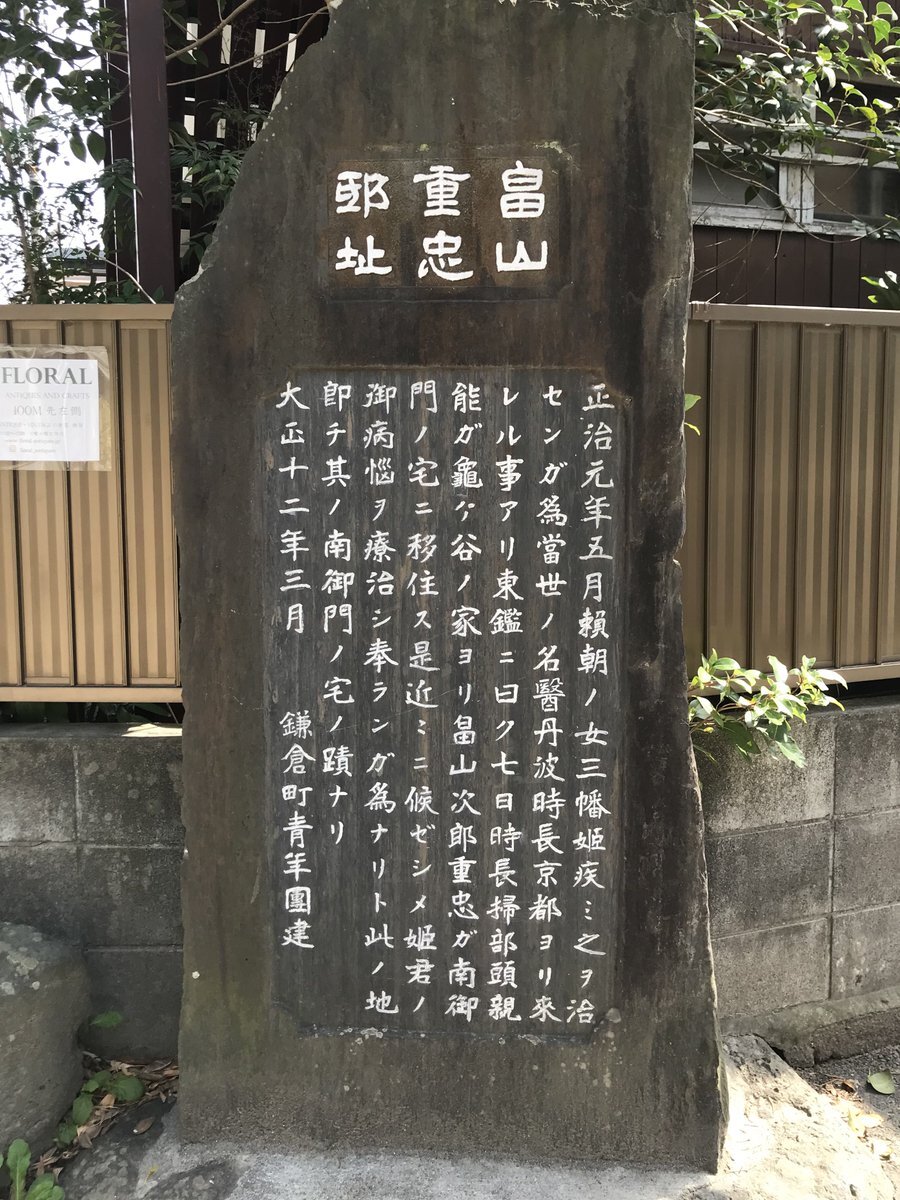 畠山
重忠
邸址
正治元年五月賴朝ノ女三幡姬疾ミ之ヲ治
センガ為當世ノ名醫丹波時長京都ヨリ來
レル事アリ東鑑ニ曰ク七日時長掃部頭親
能ガ龜ケ谷ノ家ヨリ畠山次郎重忠ガ南御
門ノ宅ニ移住ス是近ミニ候ゼシメ姬君ノ
御病惱ヲ療治シ奉ランガ為ナリト此ノ地
即チ其ノ南御門ノ宅ノ蹟ナリ
大正十二年三月 鎌倉町青年團建
FLORAL
ANTIQUES AND CRAFTS
100M 先左側